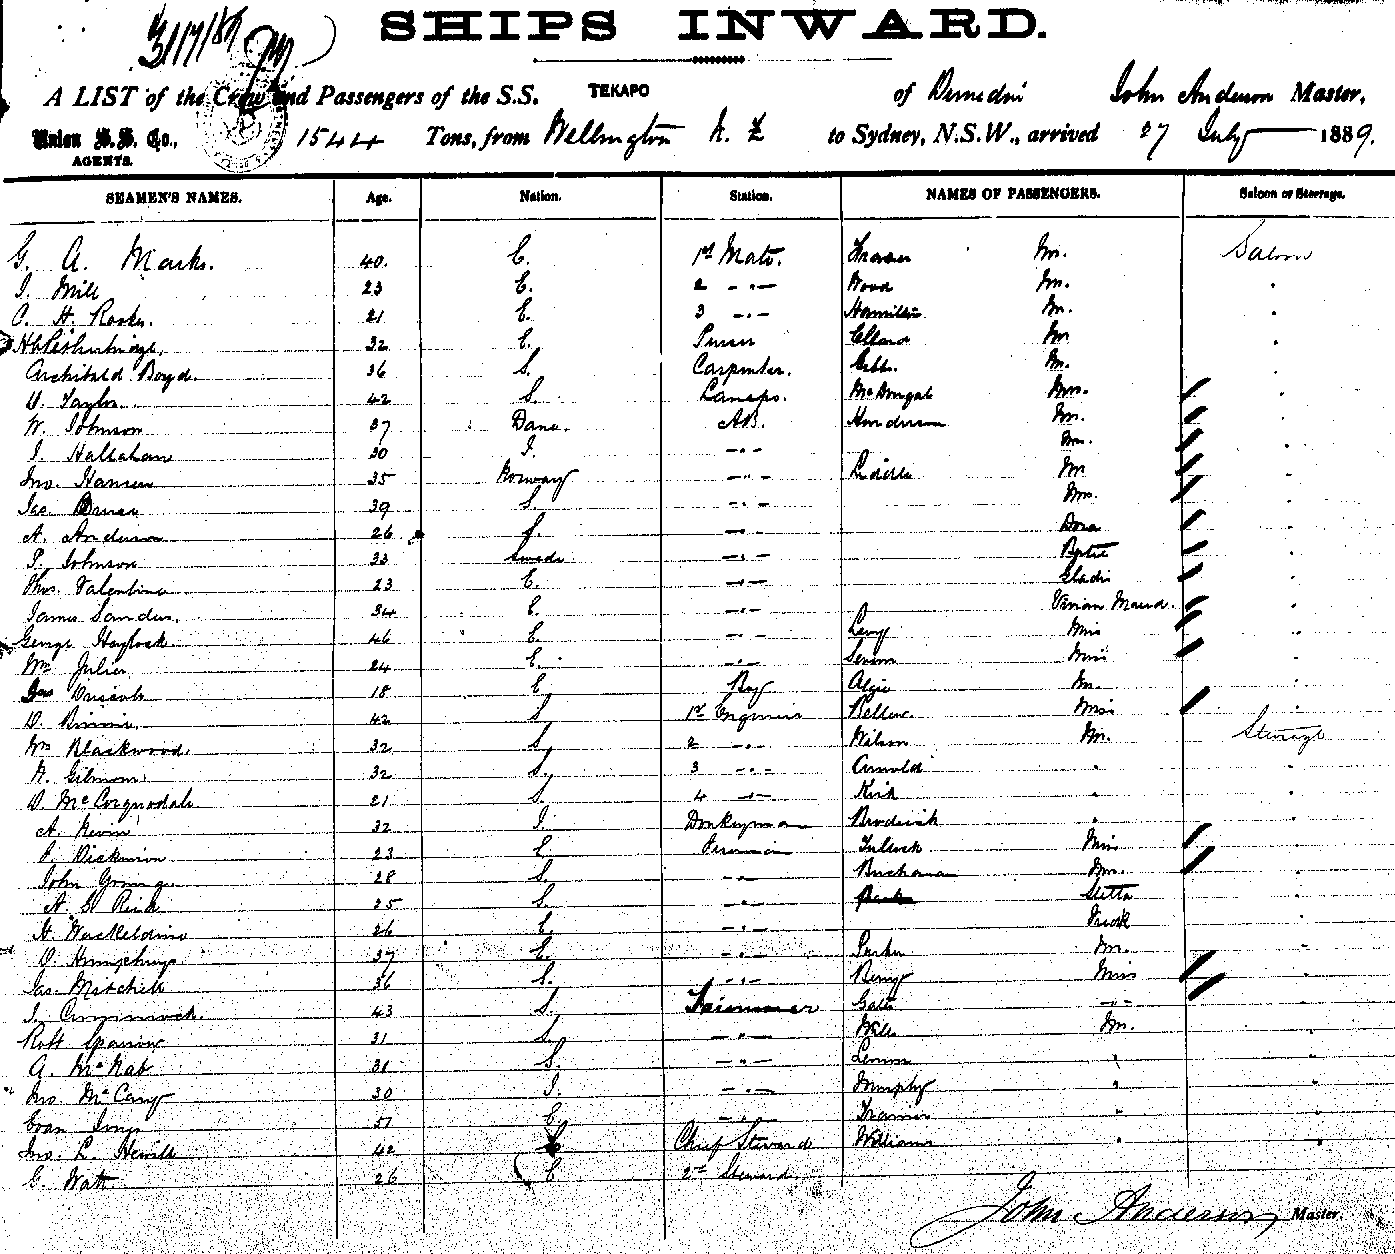 31/7/89
SHIPS INWARD.
A LIST of the Crew and Passengers of the S.S. TEKAPO of Dunedin John Anderson Master,
Union S. S. Co., AGENTS. 1544 Tons, from Wellington N. Z to Sydney, N.S.W., arrived 27 July 1889.
SEAMEN'S NAMES. Age. Nation. Station. NAMES OF PASSENGERS. Saloon or Steerage.
G. A. Marks. 40. E. 1st Mate. Fraser Mr. Saloon
J. Mill 23 E. 2 -"- Wood Mr. "
C. H. 21 E. 3 -"- Hamilton Mr. "
32 E. Purser Mr "
Archibald Boyd. 36 S. Carpenter. Gibbs. Mr. "
D. Taylor. 42 S. Lamps. McDougal Mrs. "
W. Johnson 27 Dane. AB. Henderson Mr. "
J. Hallahan 30 I. -"- Mrs. "
Jno. Hansen 35 Norway -"- Mr "
Jas. Bruce 39 S. -"- Mrs. "
A. Anderson 26 S. -"- Dora "
P. Johnson 33 Swede -"- "
Thos. Valentine 23 E. -"- Gladis "
James Sanders. 34 E. -"- Vivian Maud. "
George Haylock 46 E. -"- Levy Miss "
Wm Julier 24 E. -"- Miss "
Driscoll 18 E. Boy Algie Mr. "
D. 42 S. 1st Engineer Bellew. Miss "
Wm Blackwood. 32 S. 2 -"- Wilson Mr. Steerage
R. Gilmour. 32 S. 3 -"- Arnold " "
D. McCorquodale 21 S. 4 -"- Kirk " "
A. Kevin 32 I. Donkeyman Broderick " "
J. Dickinson 23 E. Fireman Miss "
John Young 28 S. -"- Buchanan Mrs. "
A. G. Reid 25 S. -"- "
H. 26 E. -"- "
O. Humphreys 37 E. -"- Parker Mr. "
Jas. Mitchell 36 S. -"- Berry Miss "
J. Cummock. 43 S. Trimmer Gates -"- "
Robt Sparrow 31 S. -"- Wills Mr. "
A. McNab 31 S. -"- Lennon " "
Jno. McCarry 30 I. -"- Murphy " "
Evan Jones 51 E. -"- " "
Jno. L. Hewitt 42 Chief Steward Williams " "
C. Watt 26 E 2nd Steward.
John Anderson Master.